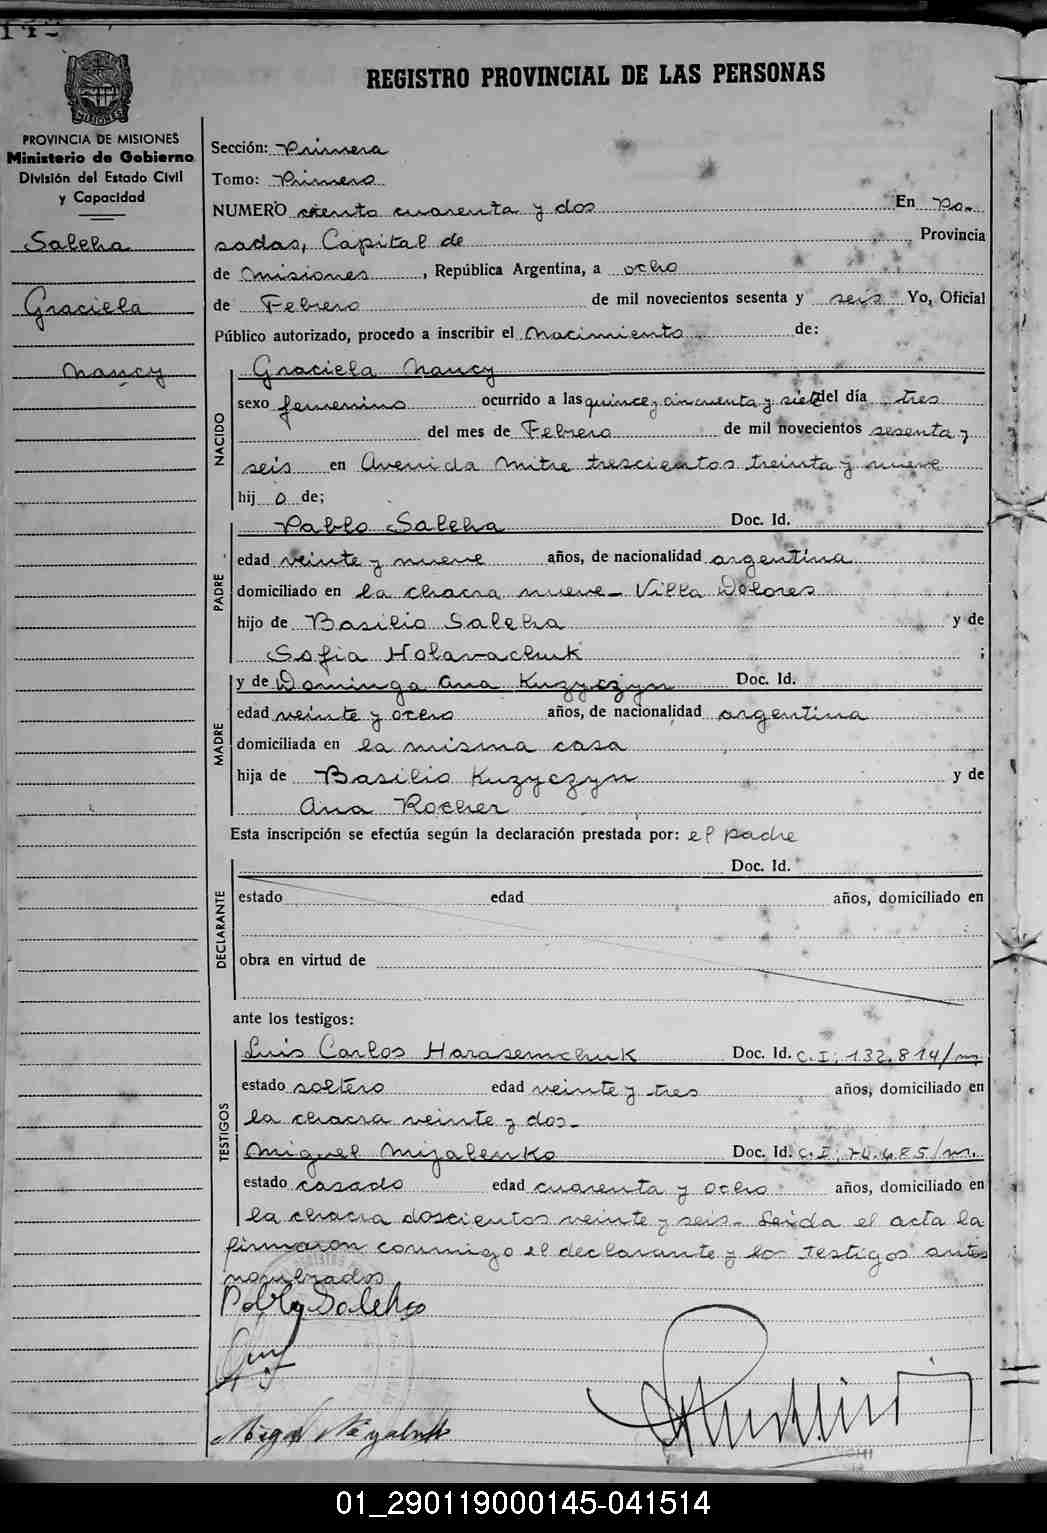 142
REGISTRO PROVINCIAL DE LAS PERSONAS
MISIONES
PROVINCIA DE MISIONES
Ministerio de Gobierno
División del Estado Civil
y Capacidad
Saleha
Graciela
Nancy
Sección: Primera
Tomo: Primero
NUMERO ciento cuarenta y dos En Po-
sadas, Capital de Provincia
de Misiones, República Argentina, a ocho
de Febrero de mil novecientos sesenta y seis Yo, Oficial
Público autorizado, procedo a inscribir el Nacimiento de:
Graciela Nancy
NACIDO
sexo femenino ocurrido a las quince y cincuenta y siete del día tres
del mes de Febrero de mil novecientos sesenta y
seis en Avenida Mitre trescientos treinta y nueve
hij a de;
PADRE
Pablo Saleha Doc. Id.
edad veinte y nueve años, de nacionalidad argentina
domiciliado en la chacra nueve - Villa Dolores
hijo de Basilio Saleha y de
Sofia Holavachuk ;
MADRE
y de Dominga Ana Kuzyczyn Doc. Id.
edad veinte y ocho años, de nacionalidad argentina
domiciliada en la misma casa
hija de Basilio Kuzyczyn y de
Ana Rocher
Esta inscripción se efectúa según la declaración prestada por: el padre
DECLARANTE
Doc. Id.
estado edad años, domiciliado en
obra en virtud de
ante los testigos:
TESTIGOS
Luis Carlos Harasemchuk Doc. Id. C.I. 132.814/m.
estado soltero edad veinte y tres años, domiciliado en
la chacra veinte y dos-
Miguel Mijalenko Doc. Id. C.I. 74.485/m.
estado casado edad cuarenta y ocho años, domiciliado en
la chacra doscientos veinte y seis- Leida el acta la
firmaron conmigo el declarante y los testigos antes
nombrados
Pablo Saleha
01_290119000145-041514